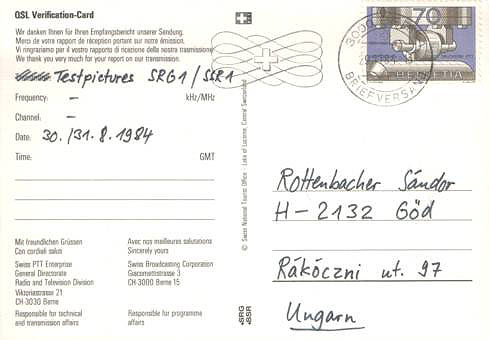 QSL Verification-Card
Wir danken Ihnen für Ihren Empfangsbericht unserer Sendung.
Merci de votre rapport de réception portant sur notre émission.
Vi ringraziamo per il vostro rapporto di ricezione della nostra trasmissione.
We thank you very much for your report on our transmission.
Testpictures SRG1 / SSR1
Frequency: – kHz/MHz
Channel: –
Date: 30./31. 8. 1984
Time: GMT
Mit freundlichen Grüssen
Con cordiali saluti
Avec nos meilleures salutations
Sincerely yours
Swiss PTT Enterprise
General Directorate
Radio and Television Division
Viktoriastrasse 21
CH-3030 Berne
Swiss Broadcasting Corporation
Giacomettistrasse 3
CH-3000 Berne 15
Responsible for technical
and transmission affairs
Responsible for programme
affairs
© Swiss National Tourist Office - Lake of Lucerne, Central Switzerland
SRG
SSR
70
HELVETIA
BRIEFVERSAND
Rottenbacher Sándor
H-2132 Göd
Rákóczni ut. 97
Ungarn